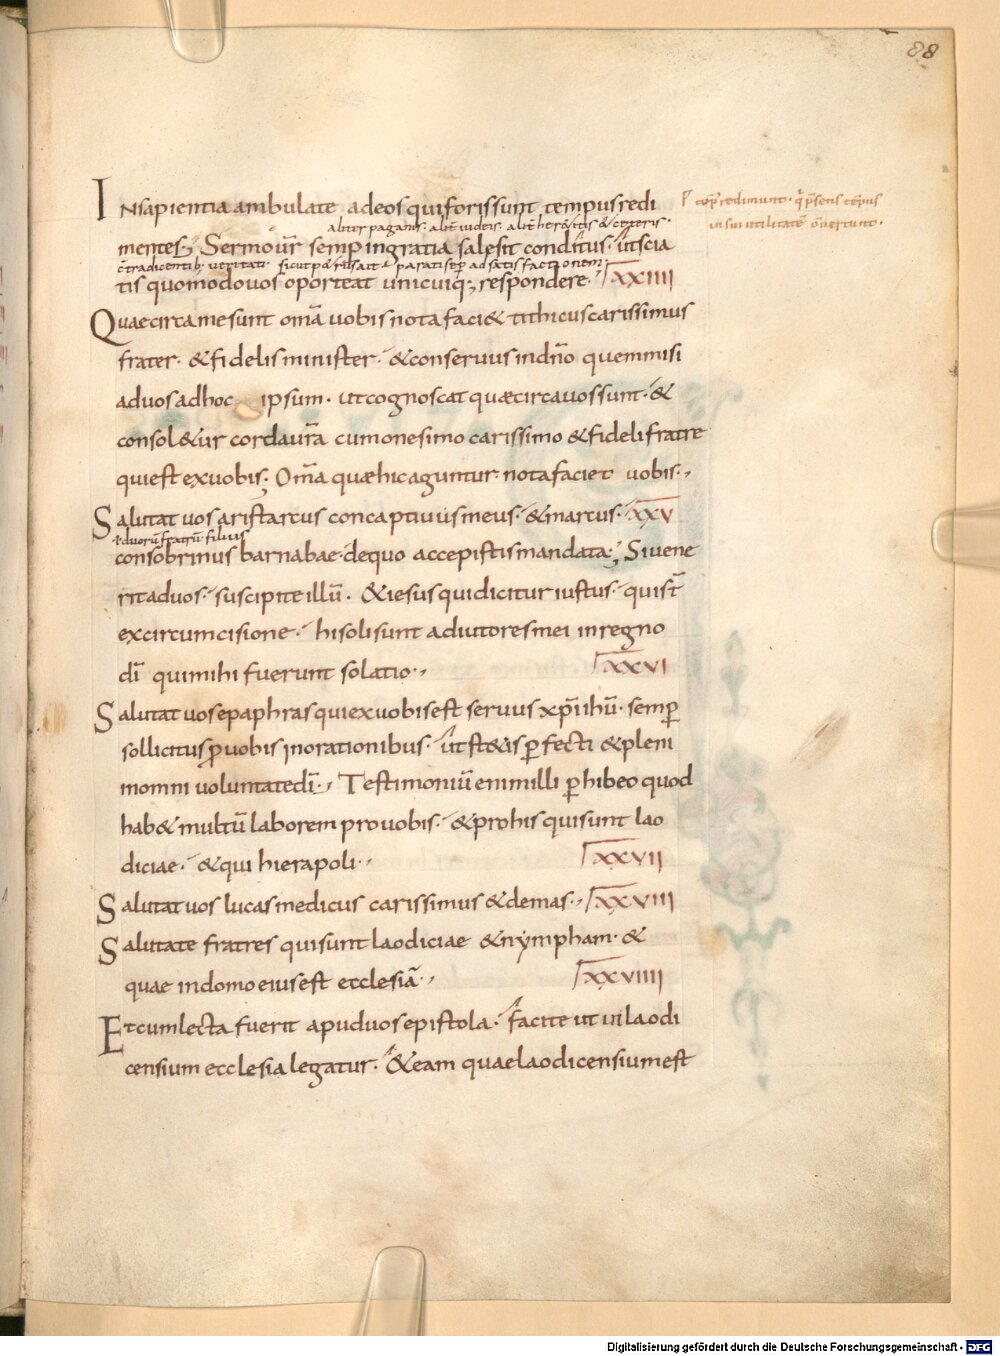 88
IN sapientia ambulate ad eos qui foris sunt tempus redi
p̄ tēp̄ redimunt · q̄ p̄sens tēpus
in sui utilitatē ōuertunt ·
aliter paganis · alit̄ iudeis · alit̄ her&icis & ceteris ·
mentes; Sermo ur̄ semp in gratia sale sit conditus · ut scia
c̄tradicentib; ueritati · sicut p&rus ait parati semp ad satisfactionem
tis quomodo uos oporteat unicuiq; respondere · XXIIII
Quae circa me sunt om̄a uobis nota faci& tithicus carissimus
frater · & fidelis minister · & conseruus in dn̄o quem misi
ad uos ad hoc ipsum · ut cognoscat quæ circa uos sunt · &
consol&ur corda ur̄a cum onesimo carissimo & fideli fratre
qui est ex uobis; Om̄a quæ hic aguntur nota faciet uobis ·
Salutat uos aristarcus concaptiuus meus · & marcus · XXV
ł duorū fratrū filius
consobrinus barnabae · de quo accepistis mandata; Si uene
rit ad uos · suscipite illū · & iesus qui dicitur iustus · qui st̄
ex circumcisione · hi soli sunt adiutores mei in regno
dī qui mihi fuerunt solatio · XXVI
Salutat uos epaphras qui ex uobis est seruus xp̄i ihū · semp
sollicitus p uobis in orationibus · ut st&is pfecti & pleni
in omni uoluntate dī · Testimoniū enim illi phibeo quod
hab& multū laborem pro uobis · & pro his qui sunt lao
diciae · & qui hierapoli · XXVII
Salutat uos lucas medicus carissimus & demas · XXVIII
Salutate fratres qui sunt laodiciae & nympham · &
quae in domo eius est ecclesiā · XXVIIII
Et cum lecta fuerit apud uos epistola · facite ut in laodi
censium ecclesia legatur · & eam quae laodicensium est
Digitalisierung gefördert durch die Deutsche Forschungsgemeinschaft - DFG